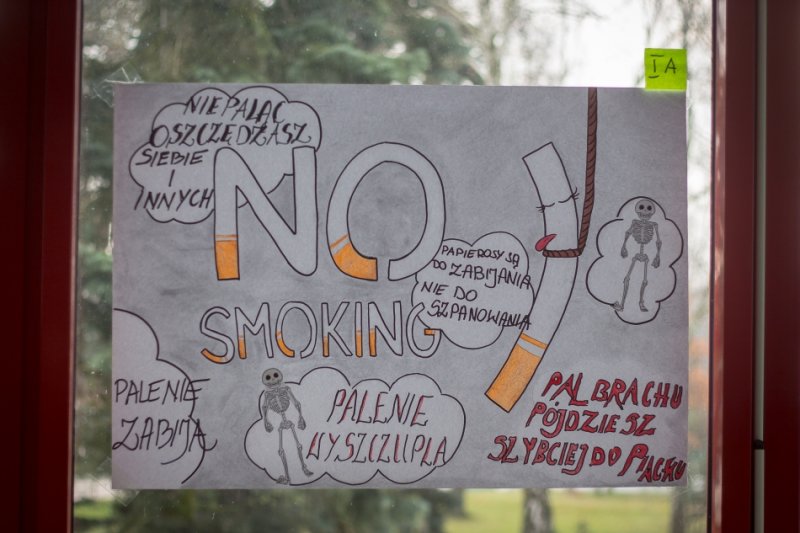 I A
NIE PALĄC
OSZCZĘDZASZ
SIEBIE
I
INNYCH
NO
SMOKING
PAPIEROSY SĄ
DO ZABIJANIA
NIE DO
SZPANOWANIA
PALENIE
ZABIJA
PALENIE
WYSZCZUPLA
PAL BRACHU
PÓJDZIESZ
SZYBCIEJ DO PIACHU